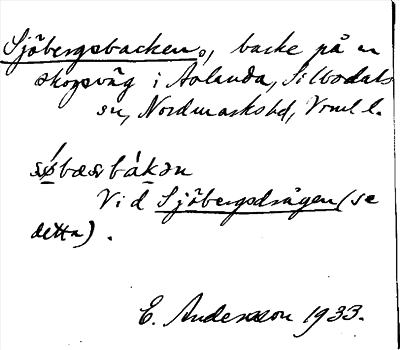 Sjöbergsbacken, backe på en
skogsväg i Aolanda, Silbodals
sn, Nordmarks hd, Vrml l.
Vid Sjöbergsdrågen (se
detta).
E. Andersson 1933.